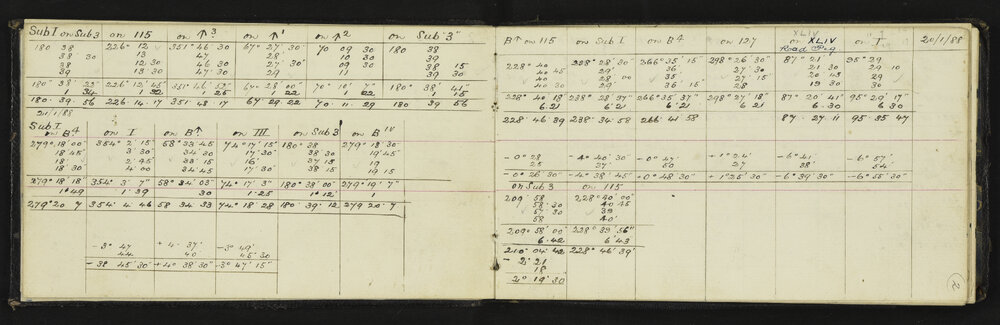 Sub I on Sub 3 on 115 on ↑3 on ↑1 on ↑2 on Sub 3"
180 38 226° 12 351° 46 30 67° 27' 30" 70 09 30 180 38
38 13 47 28 10 30 39
38 12 30 46 30 27' 30" 09 30 38 15
39 13 30 47 30 29 11 39 30
180° 38' 226° 12' 45" 64° 28' 00" 70° 10' 180° 38' 41"
180. 39. 56 226. 14. 17 351. 48. 17 67 29. 22 70. 11. 29 180 39 56
21/1/88
Sub I
on B4 on I on B↑ on III on Sub 3 on B IV
279° 18' 00 354° 2' 15 58° 33' 45 74° 17' 15' 180° 38 279° 18' 30"
18' 45 3' 30 34' 30 17' 30" 38' 30 19' 45
18' 2' 45 33' 15 16' 37' 15 19'
18' 30 4' 00 34' 45 17' 30" 38 15 19 15
279° 18' 18" 354° 3' 7" 58° 34' 03" 74° 17' 3" 180° 38' 00" 279° 19' 7"
1' 49 1' 39 30 1' 25 1' 12 1
279 20 7 354. 4. 46 58 34. 33 74° 18' 28 180. 39. 12 279 20. 7
- 3° 47 + 4. 37' - 3° 49'
44 40 45 30
- 3° 45' 30" + 4° 38' 30" - 3° 47' 15"
B↑ on 115 on Sub I on B4 on 127 on XLIV on "I" 20/1/88
XLIV
Road Peg
228° 40 238° 28' 30" 266° 35' 15 298° 26' 30" 87° 21' 95° 29'
40 45 29' 36 27 30 21 30 29 10
40 28 00 35 27' 15 20 45 29
40 30 29 36' 15 28 19 30 30
228° 40 18 238° 28' 37" 266° 35' 37" 298° 27' 18" 87° 20' 41" 95° 29' 17"
6. 21 6' 21 6' 21 6 21 6. 30 6 30
228. 46 39 238. 34. 58 266. 41 58 87. 27. 11 95. 35 47
- 0° 28 - 4° 40' 30" - 0° 47' + 1° 24' - 6° 41' - 6° 57'
25 37' 50 27 38' 54'
- 0° 26 30" - 4° 38' 45" + 0° 48' 30" + 1° 25' 30" - 6° 39' 30" - 6° 55' 30"
on Sub 3 on 115
209 58 228° 40' 00"
58. 30 40 45
57' 30 39
58 40'
209° 58' 00" 228° 39' 56"
6. 42 6' 43
210° 04' 42 228° 46' 39'
- 2° 21
18
2° 19' 30